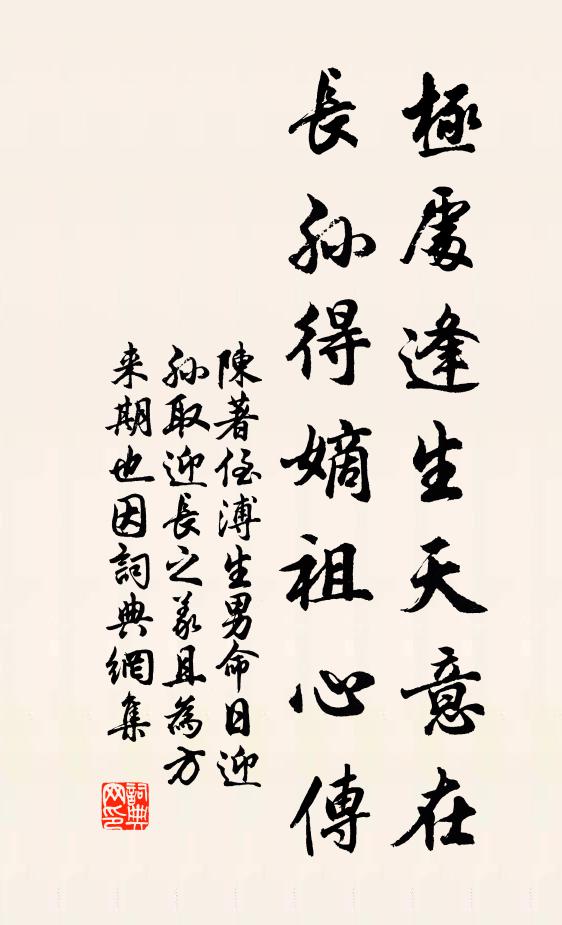 極處逢生天意在
長孙得嫡祖心傳
陳著侄溥生男命日迎
孙取迎長之義且為方
来期也因詞典網集
詞典网印